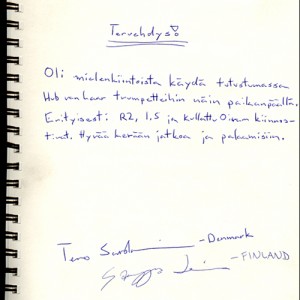 Tervehdys!
Oli mielenkiintoista käydä tutustumassa
Hub van Laar trumpetteihin näin paikanpäällä.
Erityisesti R2, 1.5 ja kullattu Oiram kiinnos-
tivat. Hyvää kevään jatkoa ja palaamisiin.
Tero - Denmark
Seppo - FINLAND